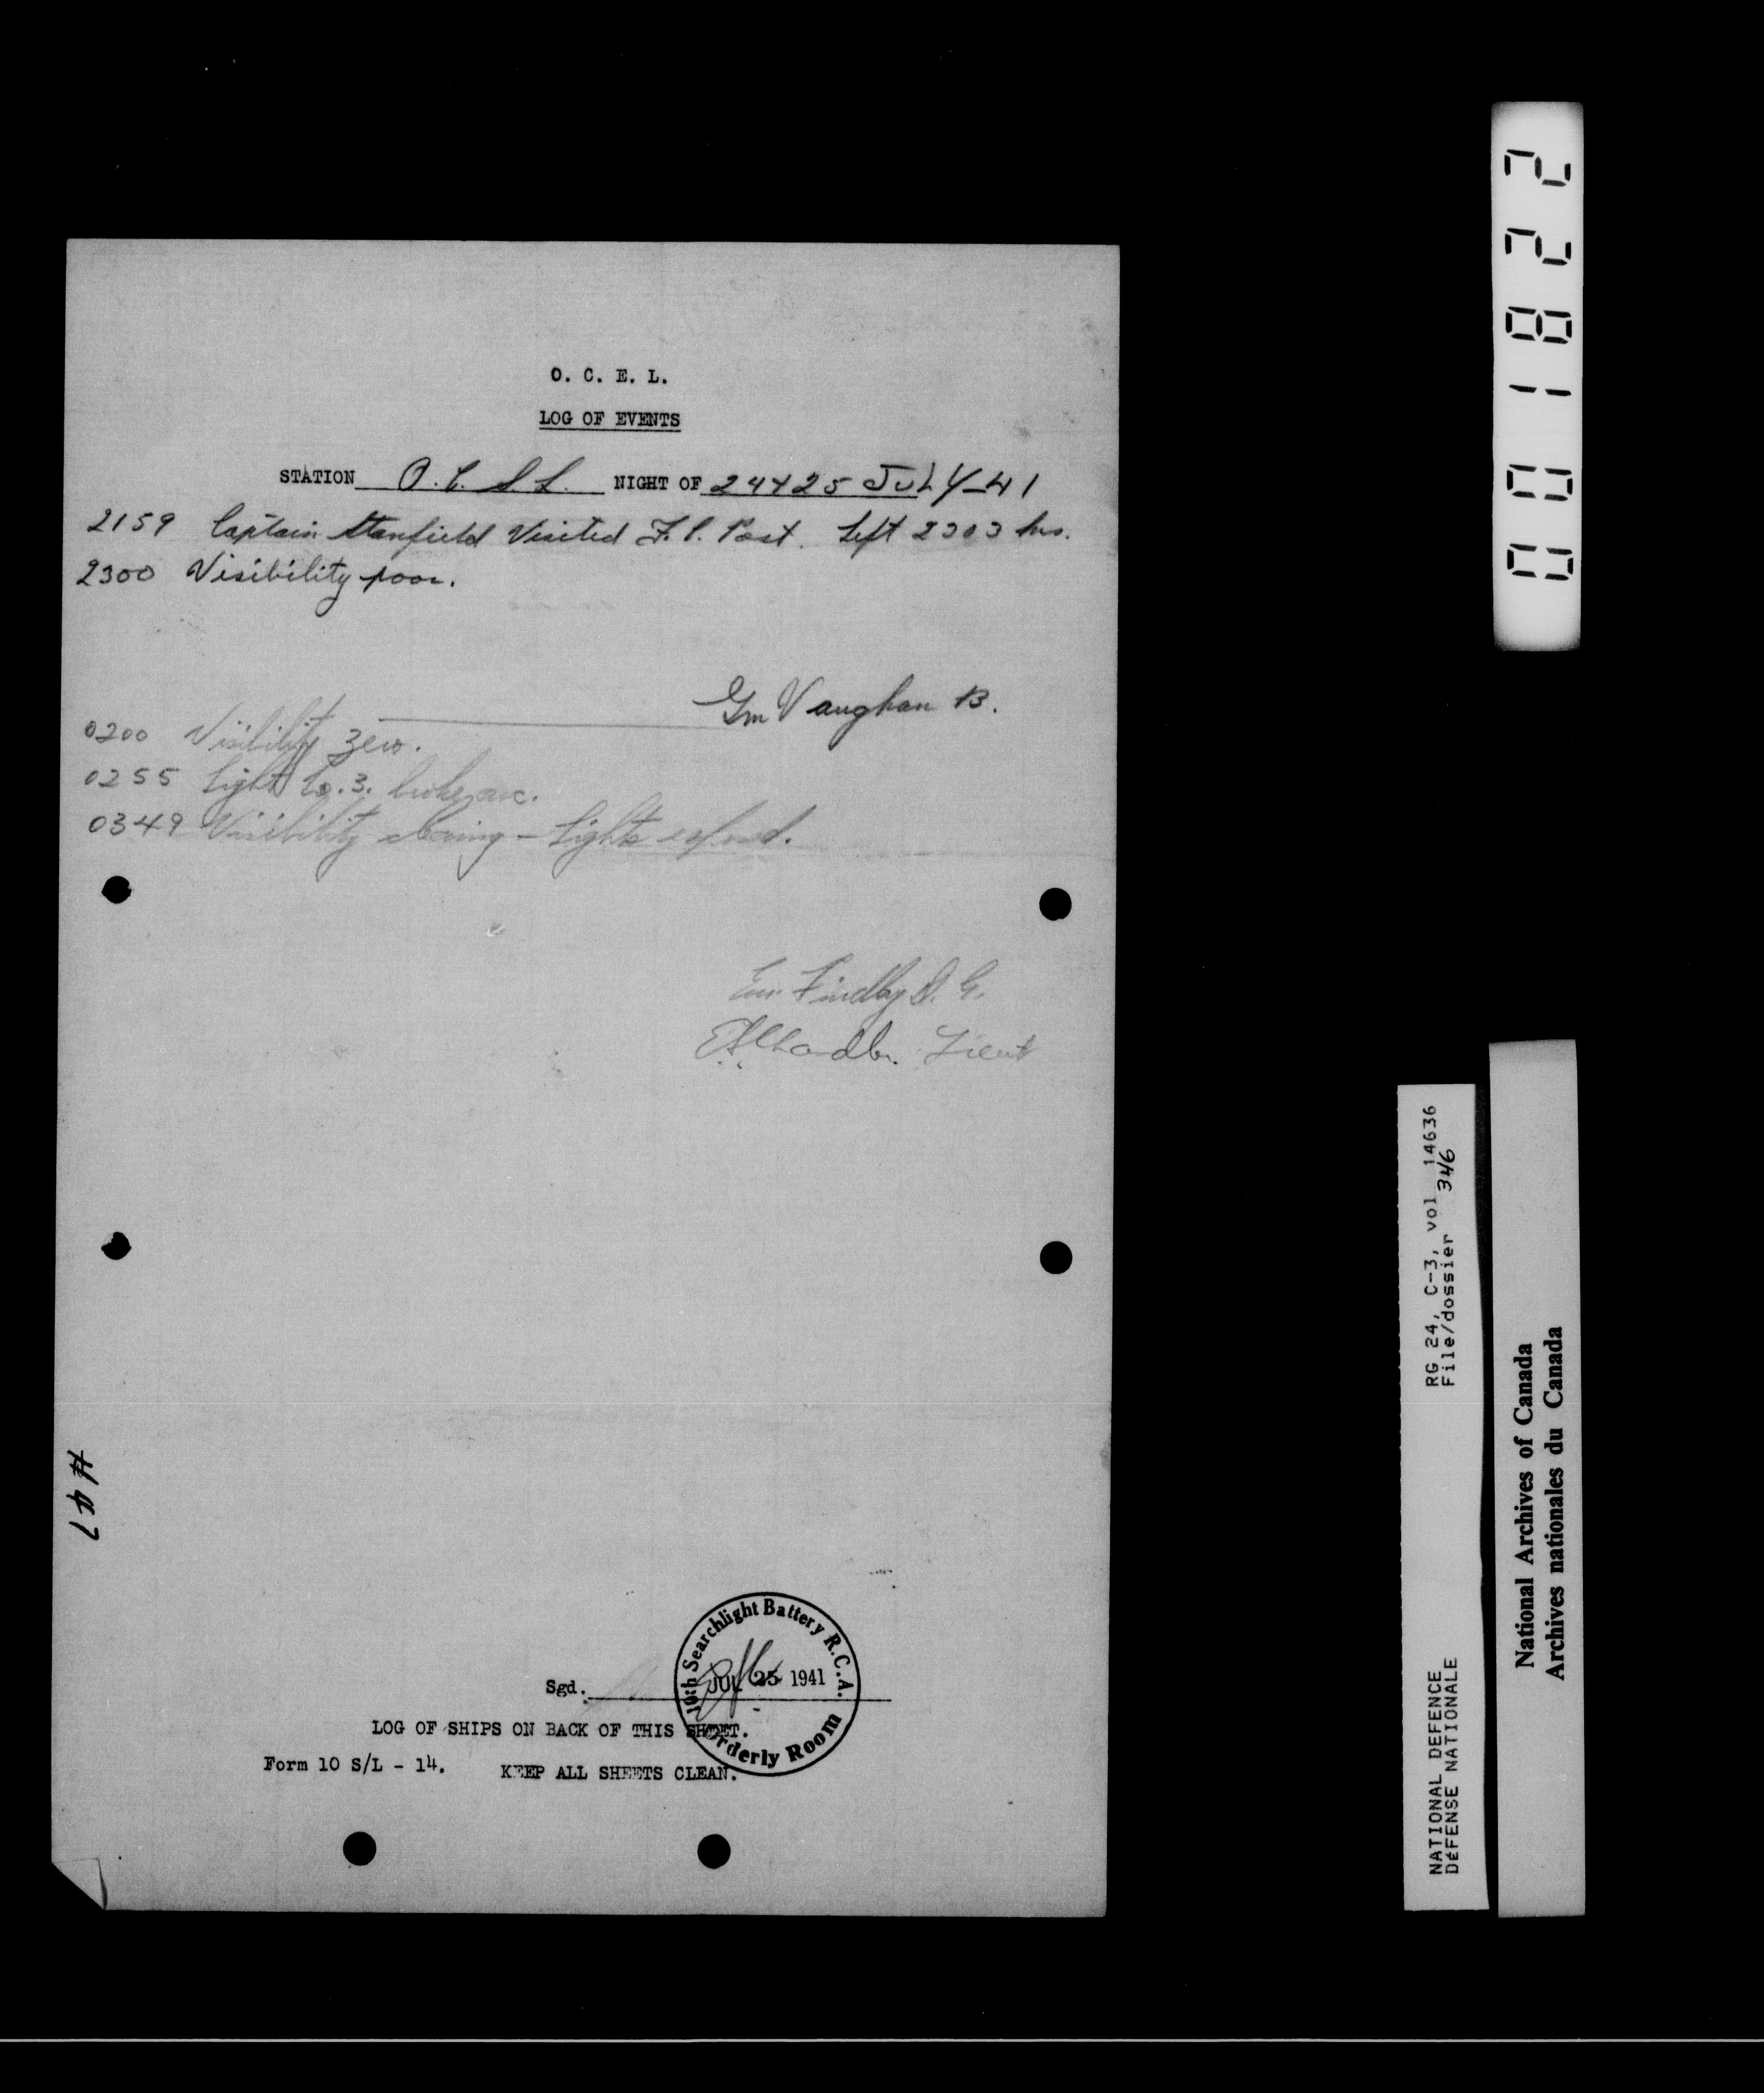 O. C. E. L.
LOG OF EVENTS
STATION O.C. S.L. NIGHT OF 24425 JULY-41
2159 Captain Stanfield Visited F.C. Post. Left 2303 hrs.
2300 Visibility poor.
Gnr Vaughan B.
0200 Visibility zero.
0255 Light No.3. broke arc.
0349 Visibility clearing - Lights exposed.
Gnr. Findlay D. G.
Lieut
#97
Sgd.
10th Searchlight Battery R.C.A.
JUL 25 1941
Orderly Room
LOG OF SHIPS ON BACK OF THIS SHEET.
Form 10 S/L - 14. KEEP ALL SHEETS CLEAN.
001822
RG 24, C-3, vol 14636
File/dossier 346
NATIONAL DEFENCE
DÉFENSE NATIONALE
National Archives of Canada
Archives nationales du Canada